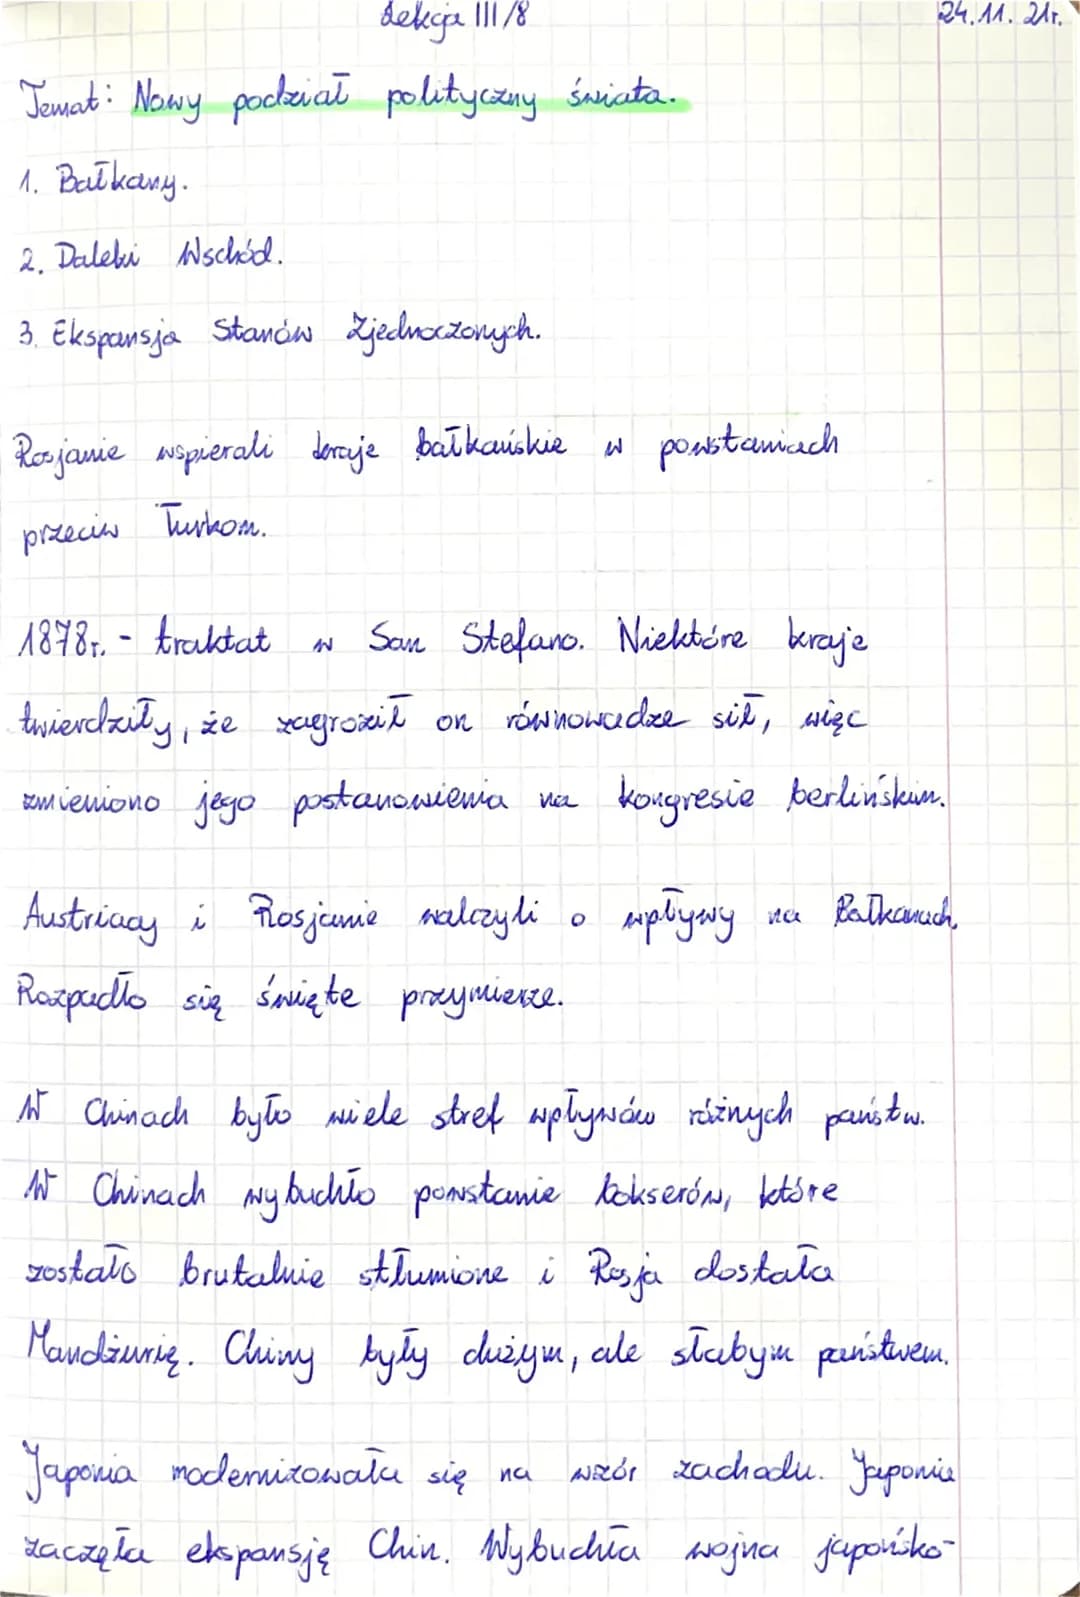 Lekcja III/8
24.11.21r.
Temat: Nowy podział polityczny świata.
1. Bałkany.
2. Daleki Wschód.
3. Ekspansja Stanów Zjednoczonych.
Rosjanie wspierali kraje bałkańskie w powstaniach
przeciw Turkom.
1878r. - traktat w San Stefano. Niektóre kraje
twierdziły, że zagroził on równowadze sił, więc
zmieniono jego postanowienia na kongresie berlińskim.
Austriacy i Rosjanie walczyli o wpływy na Bałkanach.
Rozpadło się święte przymierze.
W Chinach było wiele stref wpływów różnych państw.
W Chinach wybuchło powstanie bokserów, które
zostało brutalnie stłumione i Rosja dostała
Mandżurię. Chiny były dużym, ale słabym państwem.
Japonia modernizowała się na wzór zachodu. Japonia
zaczęła ekspansję Chin. Wybuchła wojna japońsko-